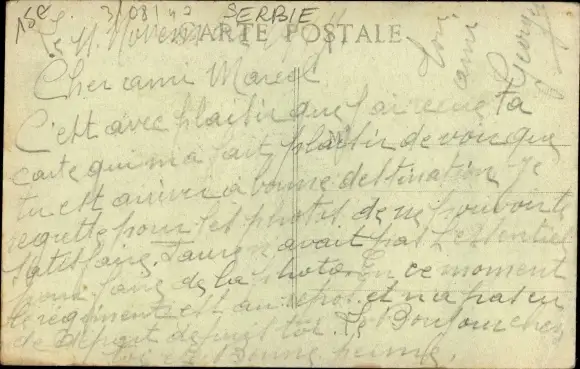 SERBIE
CARTE POSTALE
Ton ami Georges
Cher ami Marcel
C'est avec plaisir que j'ai reçu ta
carte qui m'a fait plaisir de voir que
tu est arriver a bonne destination Je
regrette pour les photos de ne pouvoir te
satisfaire. avait pas l'essentiel
pour faire de la photo. En ce moment
le regiment est au repos. et n'a pas eu
de depart depuis toi. Le Bonjour chez
toi et Bonne